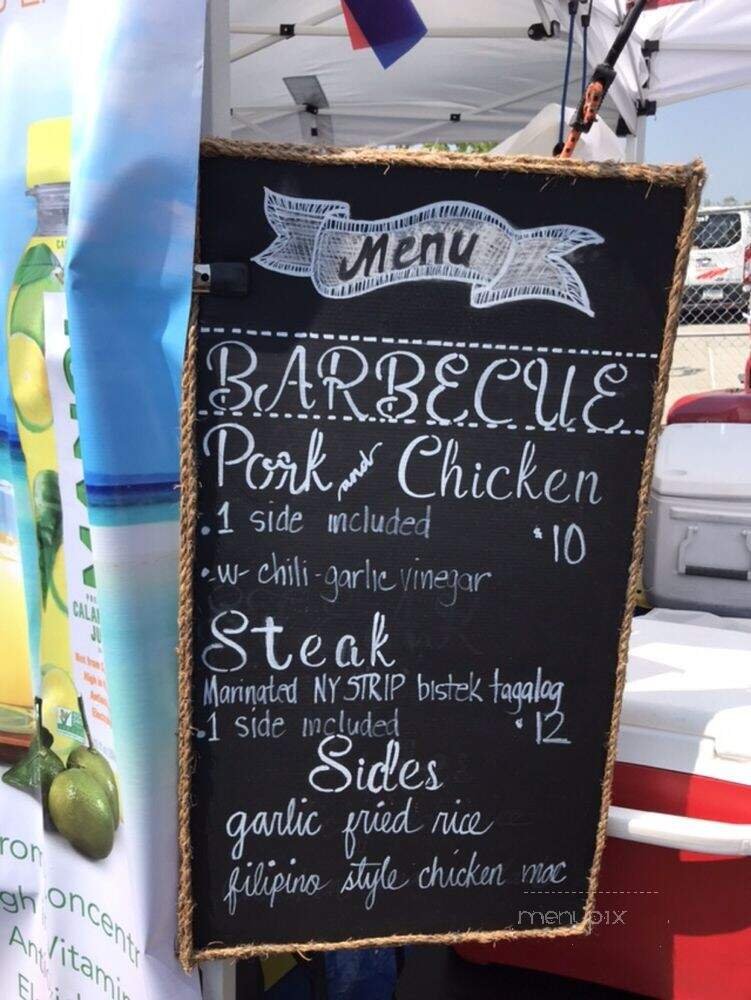 Menu
BARBECUE
Pork and Chicken
. 1 side included $10
• w- chili-garlic vinegar
Steak
Marinated NY STRIP bistek tagalog
. 1 side included $12
Sides
garlic fried rice
filipino style chicken mac
menupix